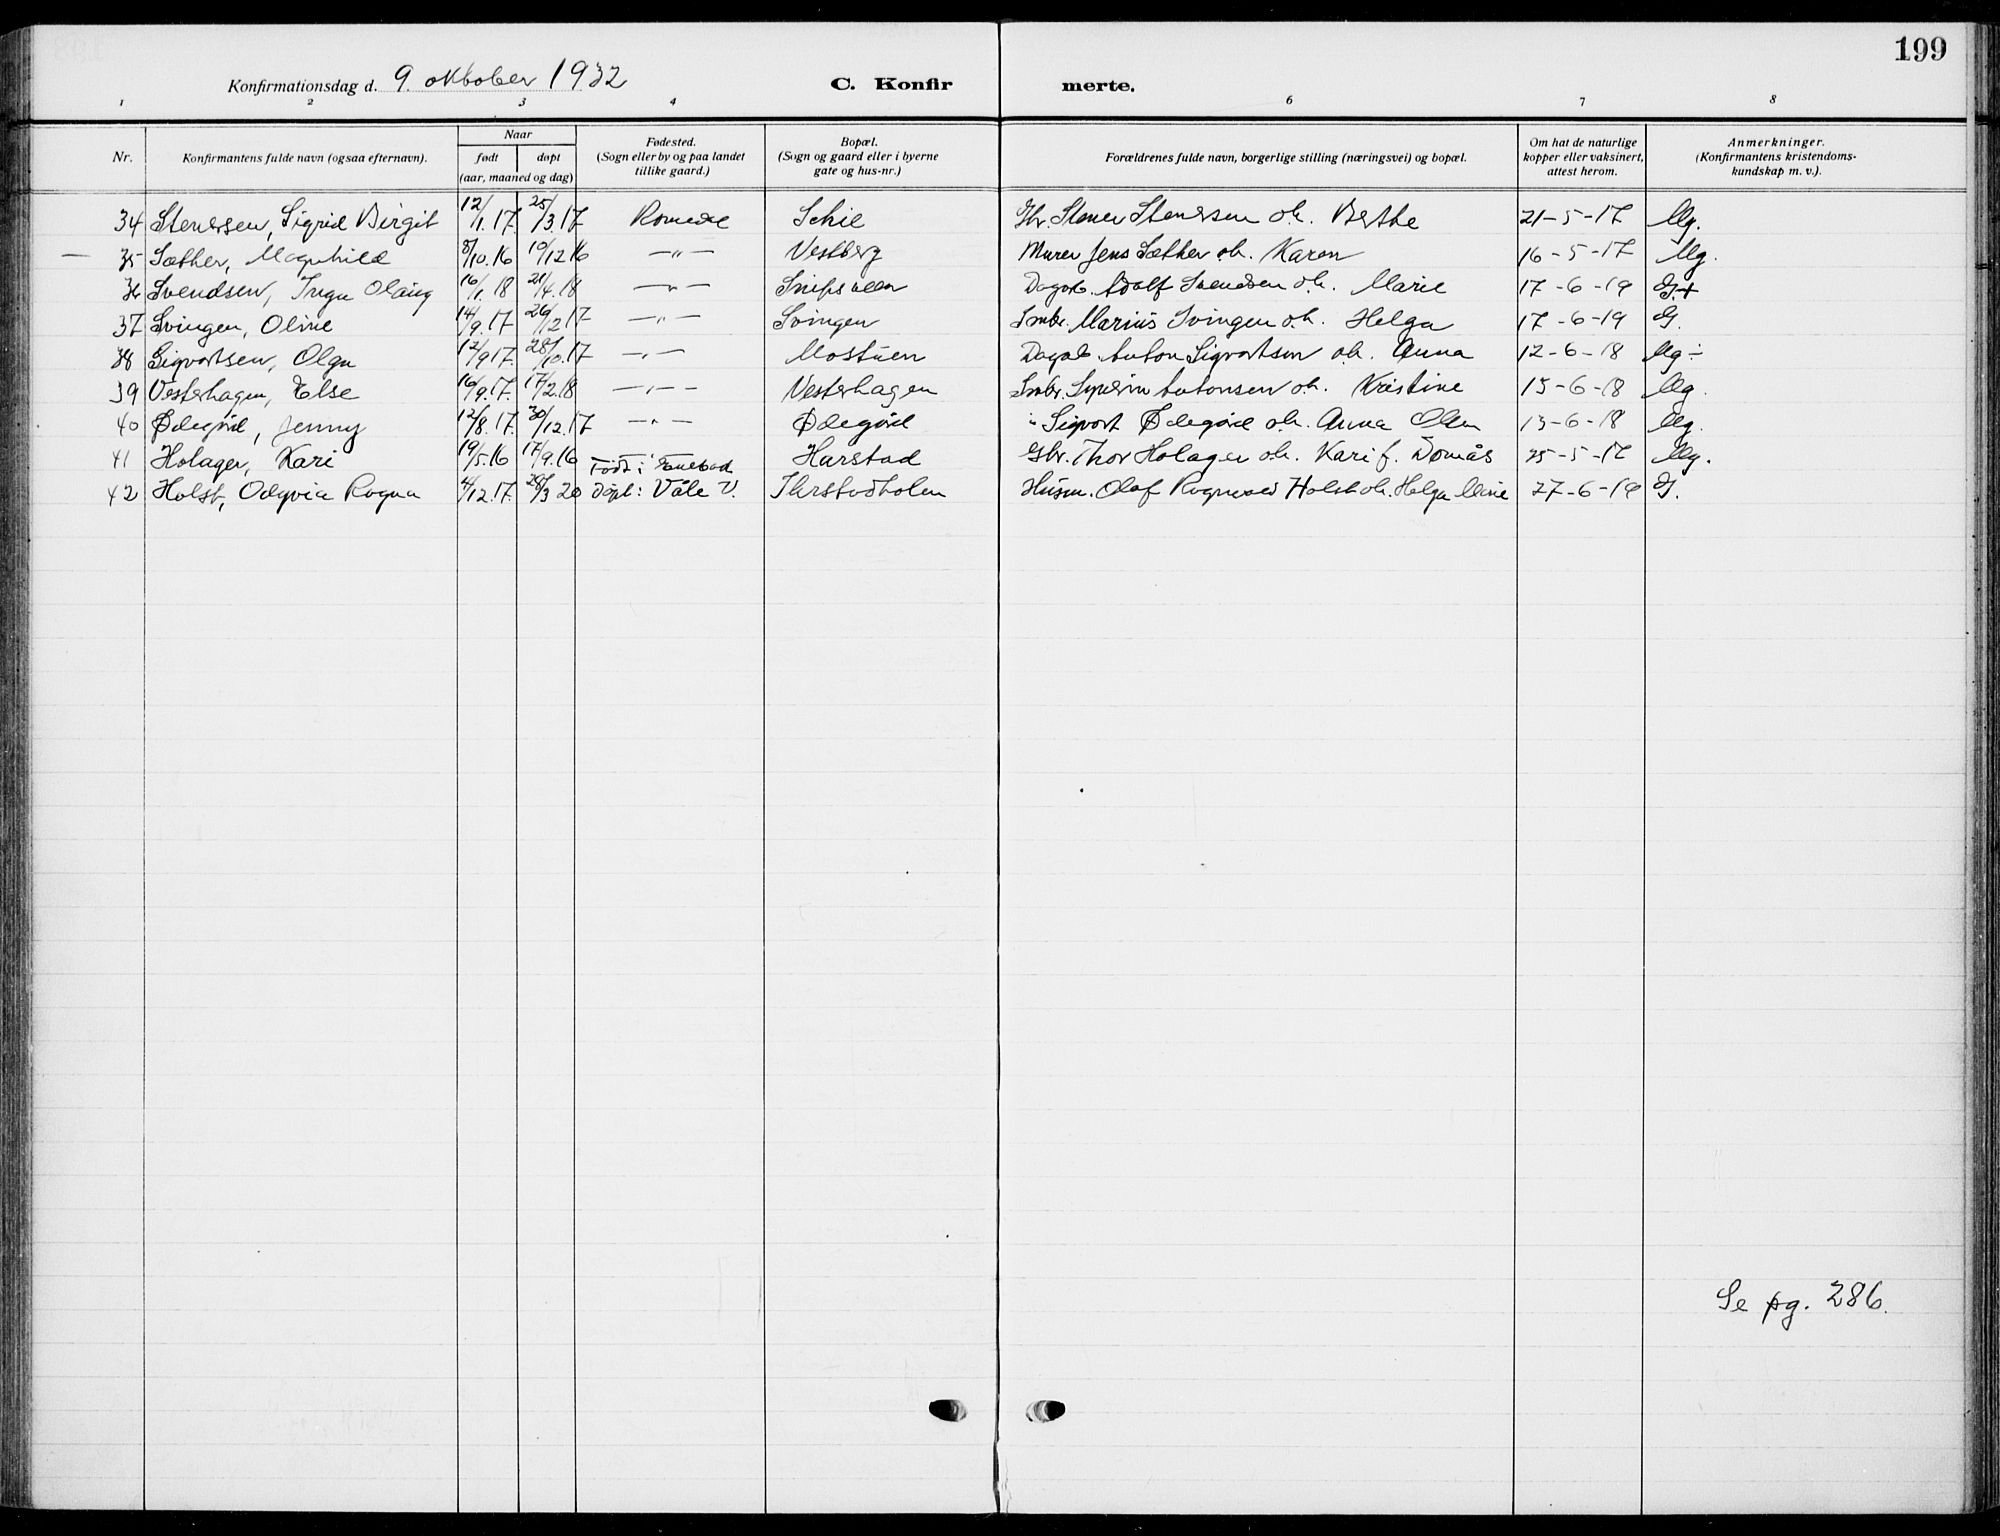 199
Konfirmationsdag d. 9. oktober 1932 C. Konfir merte.
1 2 3 4 6 7 8
Nr. Konfirmantens fulde navn (ogsaa efternavn). Naar født døpt (aar, maaned og dag) Fødested. (Sogn eller by og paa landet tillike gaard.) Bopæl. (Sogn og gaard eller i byerne gate og hus-nr.) Forældrenes fulde navn, borgerlige stilling (næringsvei) og bopæl. Om hat de naturlige kopper eller vaksinert, attest herom. Anmerkninger. (Konfirmantens kristendoms- kundskap m. v.).
34 Stenersen, Sigrid Birgit 12/1.17. 25/3.17 Romedal Schie Gbr. Stener Stenersen o.h. Berthe 21-5-17 Mg.
— 35 Sæther, Magnhild 8/10.16 19/12 16 —„— Vestberg Murer Jens Sæther o.h. Karen 16-5-17 Mg.
36 Svendsen, Inga Olaug 16/1.18 21/4.18 —„— Dagarb. Adolf Svendsen o.h. Marie 17-6-19 G.+
37 Svingen, Oline 14/9.17. 26/12 17 —„— Svingen Smbr. Marius Svingen o.h. Helga 17-6-19 G.
38 Sigvartsen, Olga 12/9 17. 28/10.17 —„— Mostuen Dagarb. Anton Sigvartsen o.h. Anna 12-6-18 Mg ÷
39 Vesterhagen, Else 16/9.17. 17/2.18 —„— Vesterhagen Smbr. Antonsen o.h. Kristine 15-6-18 Mg.
40 Ødegård, Jenny 12/8.17. 30/12.17 —„— Ødegård „ Sigvart Ødegård o.h. Anna Olsen 13-6-18 Mg.
41 Holager, Kari 19/5.16 17/9.16 Harstad Gbr. Thor Holager o.h. Kari f. Dømås 25-5-17 Mg.
Født i
42 Holst, Ragna 4/12.17. 28/3 20 Døpt: Våle V. Husm. Olaf Holst o.h. Helga 27-6-19 G.
Se pg. 286.